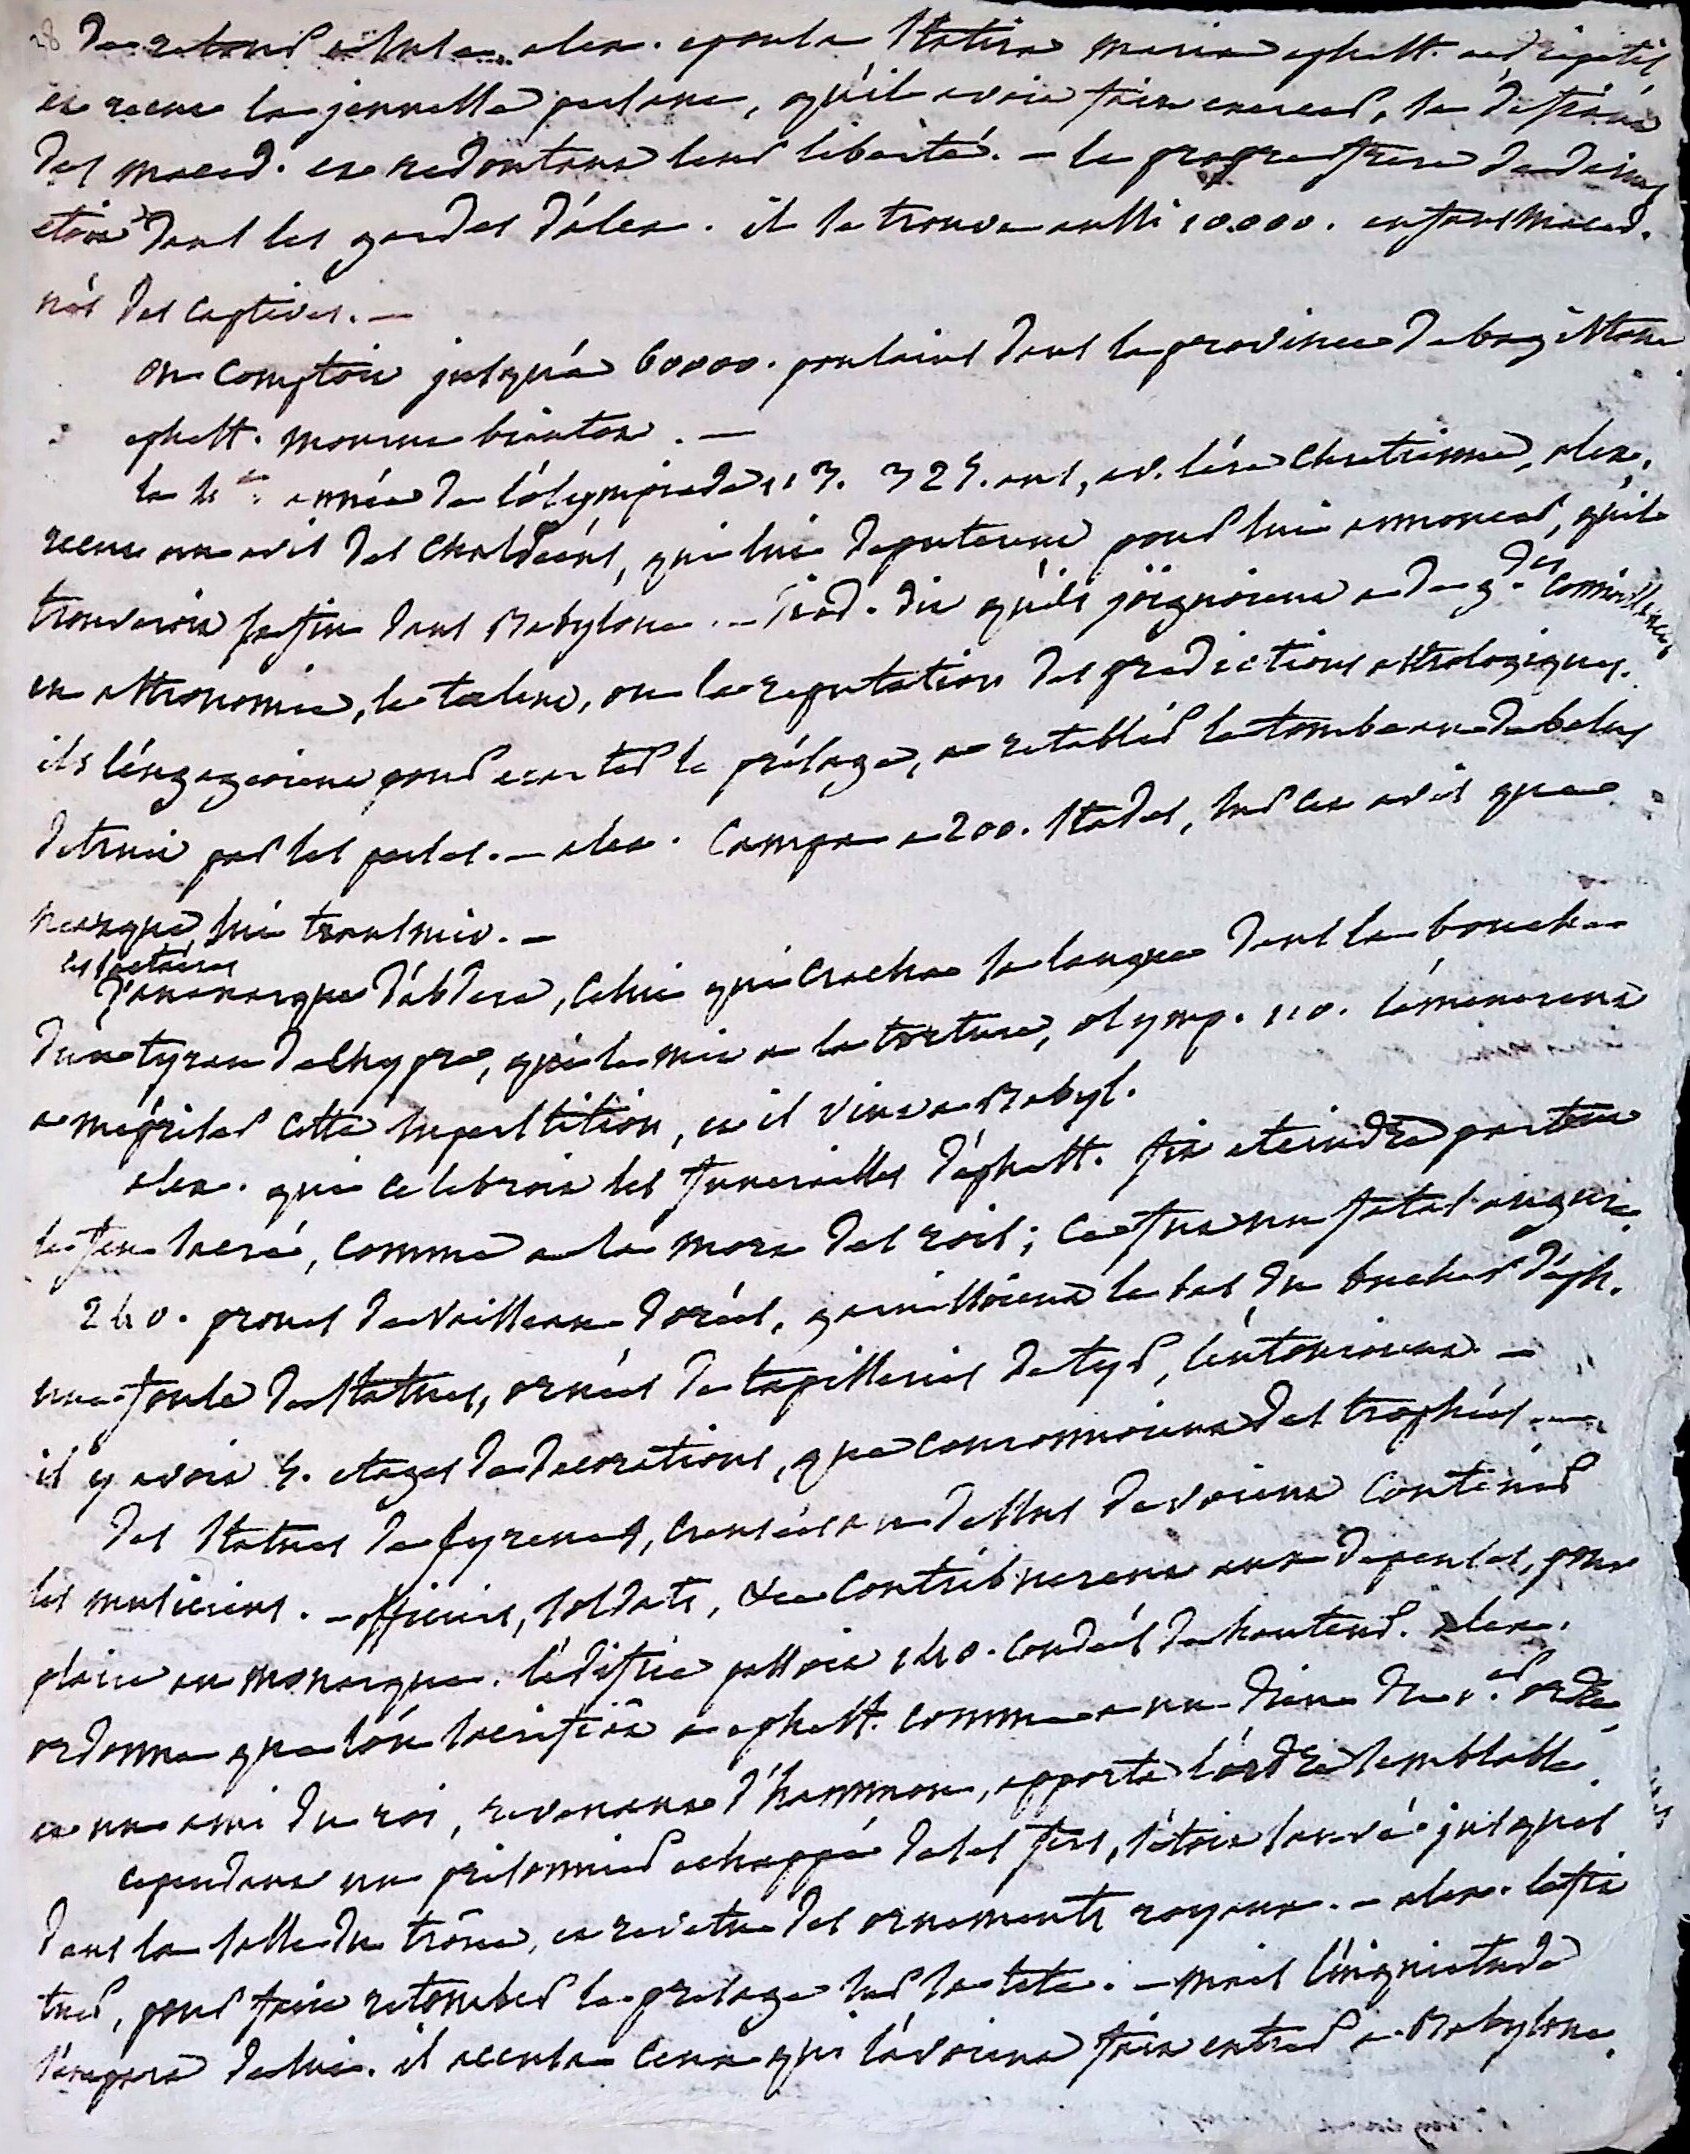 28 De retour à Suse, alex. epousa Statira maria ephest. a dripetis
et reçut la jeunesse persane, qu'il avoit fait exercer, se défiant
des maced. et redoutant leur liberté. — le propre frere de darius
etoit dans les gardes d'alex. il se trouva aussi 10.000. enfans maced.
nés des captives. —
on comptoit jusqu'à 60000. poulains dans la province de bagistane
ephest. mourut bientost. —
la 4e. année de l'olympiade 113. 325. ans, av. l'ére chretienne, alex.
recut un avis des chaldéens, qui lui deputerent pour lui annoncer, qu'il
trouveroit sa fin dans Babylone. — diod. dit qu'ils joignoient a de gdes connoissances
en astronomie, le talent, ou la reputation des predictions astrologiques.
ils l'engageoient pour ecarter le présage, a retablir le tombeau de belus
detruit par les perses. — alex. campa a 200. stades, sur cet avis que
nearque lui transmit. —
les sectaires
d'anaxarque d'abdere, celui qui cracha sa langue dans la bouche
d'un tyran de chypre, qui le mit a la torture, olymp. 110. l'amenerent
a mépriser cette superstition, et il vint a Babyl.
alex. qui celebroit les funerailles d'ephest. fit eteindre partout
le feu sacré, comme a la mort des rois; ce fut un fatal augure.
240. proues de vaisseaux dorées, garnissoient le bas du bucher d'eph.
une foule de statues, ornées de tapisseries de tyr, l'entouroient. —
il y avoit 5. etages de decorations, que couronnoient des trophées. —
des statues de syrenes, creusées au dedans devoient contenir
les musiciens. — officiers, soldats, &c contribuerent aux depenses, pour
plaire au monarque. l'édifice passoit 140. coudées de hauteur. alex.
ordonna que l'on sacrifiât a ephest. comme a un dieu du 1.er ordre
et un ami du roi, revenant d'hammon, apporta l'ordre semblable.
cependant un prisonnier echappé de ses fers, s'étoit sauvé jusques
dans la salle du trône, et revetu des ornements royaux. — alex. le fit
tuer, pour faire retomber le presage sur sa tete. — mais l'inquietude
s'empara de lui. il accusa ceux qui l'avoient fait entrer a Babylone.